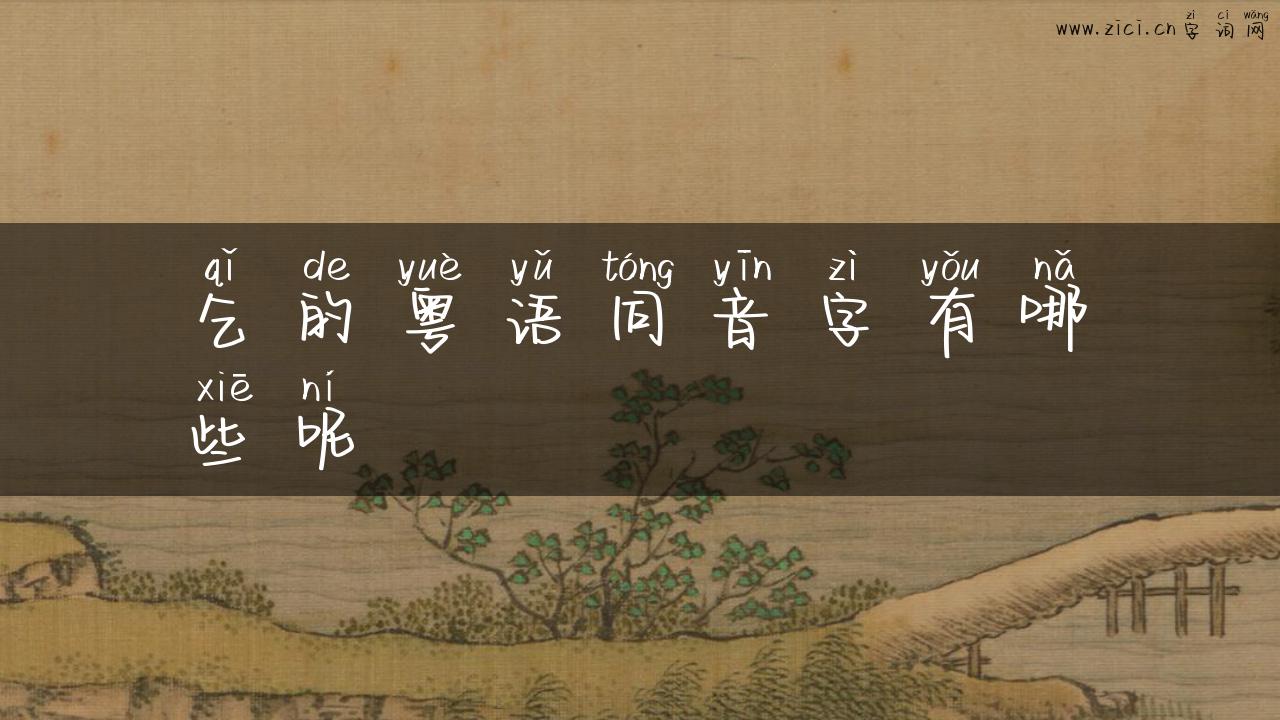 zì cí wǎng
www.zici.cn 字词网
qǐ de yuè yǔ tóng yīn zì yǒu nǎ
乞的粤语同音字有哪
xiē ní
些呢